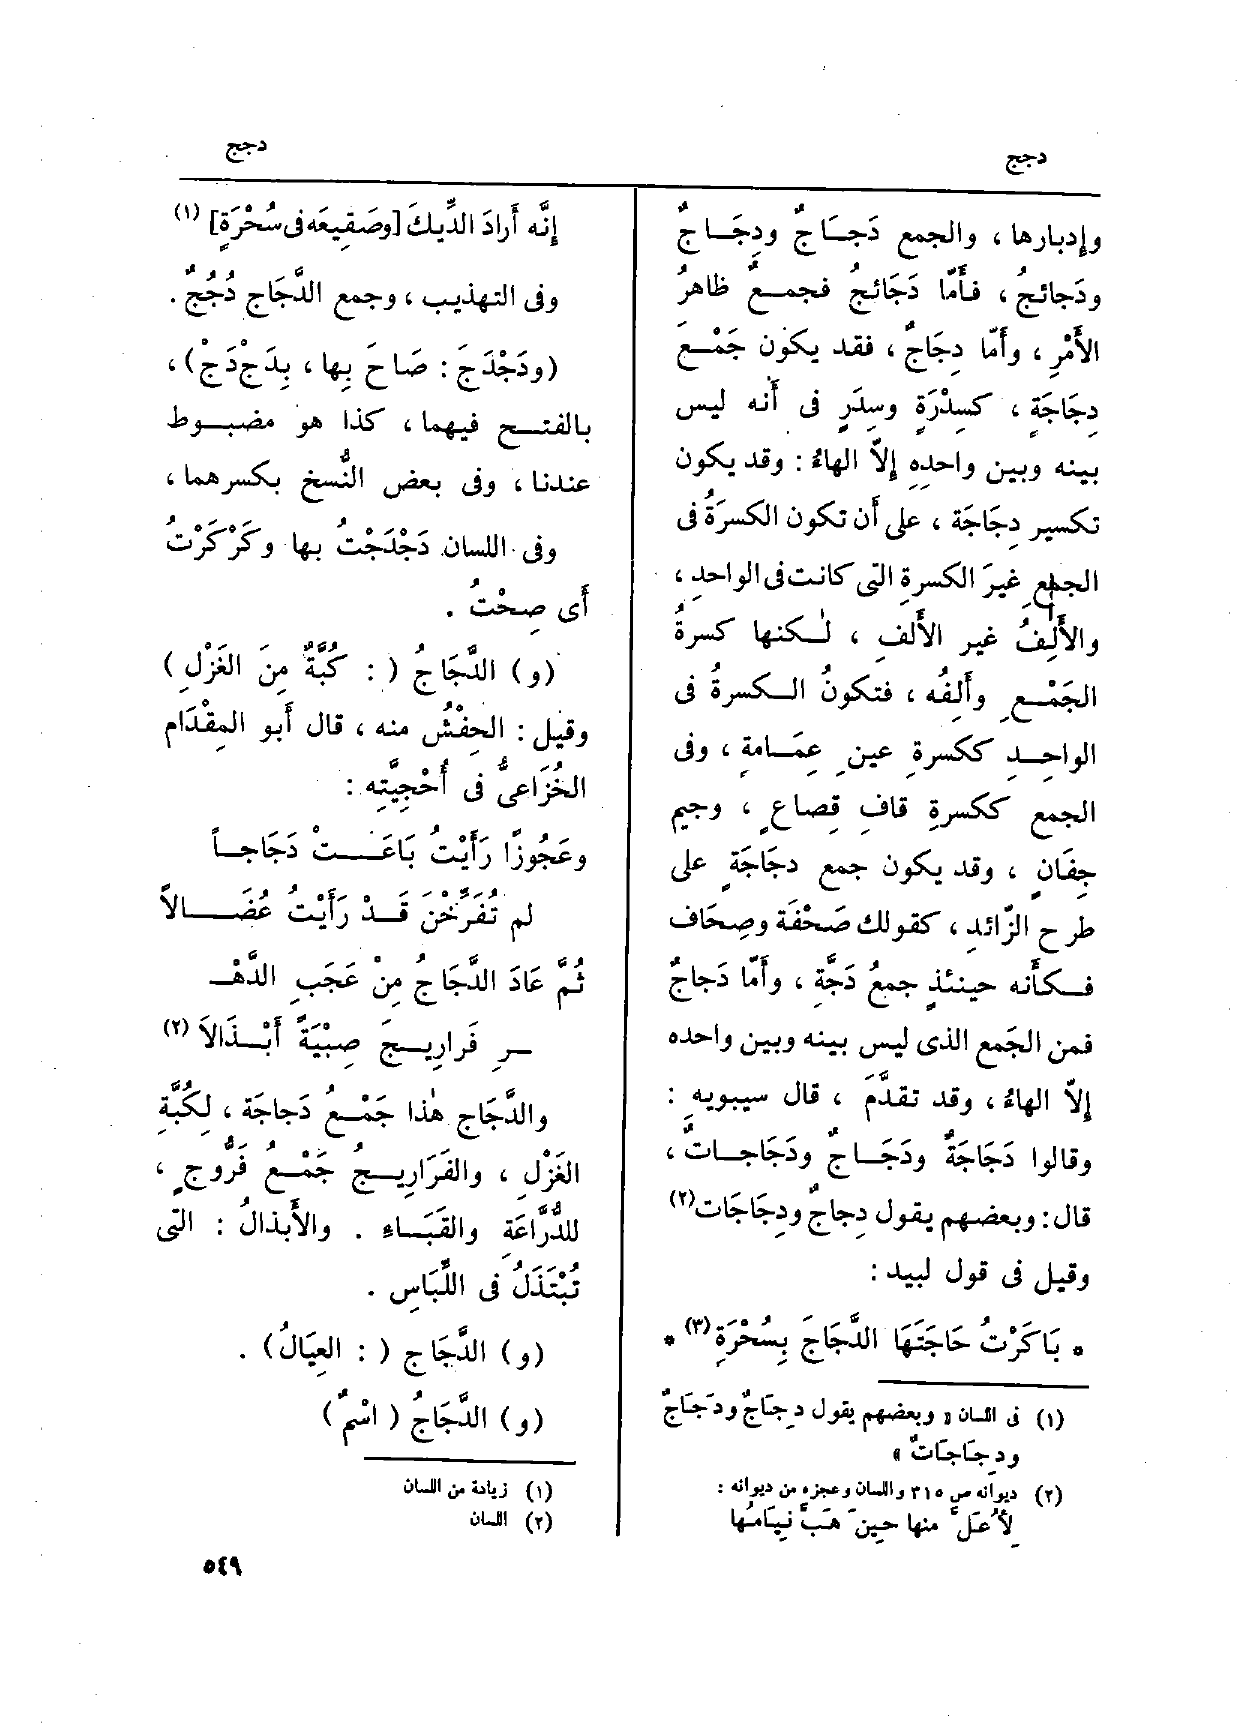 دجج
وإدبارها ، والجمع دَجَــاجٌ ودِجَــاجٌ
ودَجائجُ ، فأَمّا دَجَائجُ فجمــعٌ ظاهرُ
الأَمْرِ ، وأَمّا دِجَاجٌ ، فقد يكون جَمْــعَ
دِجَاجَةٍ ، كَسِدْرَةٍ وسِدَرٍ فى أَنه ليس
بينه وبين واحدِهِ إِلاّ الهاءُ : وقد يكون
تكسير دِجَاجَة ، على أَن تكون الكسرَةُ فى
الجمْعِ غيرَ الكسرةِ التى كانت فى الواحدِ ،
والأَلِفُ غير الأَلفِ ، لٰـكنها كسرةُ
الجَمْــعِ وأَلِفُه ، فتكونُ الــكسرةُ فى
الواحِــدِ ككسرةِ عينِ عِمَــامةٍ ، وفى
الجمع ككسرةِ قافِ قِصاعٍ ، وجيم
جِفَانٍ ، وقد يكون جمع دجَاجَةٍ على
طرح الزّائدِ ، كقولك صَحْفَة وصِحَاف
فــكأَنه حينئذٍ جمعُ دَجَّةٍ ، وأَمّا دَجاجٌ
فمن الجَمع الذى ليس بينه وبين واحده
إِلاّ الهاءُ ، وقد تقدَّم ، قال سيبويه :
وقالوا دَجَاجَةٌ ودَجَــاجٌ ودَجَاجــاتٌ ،
قال: وبعضهم يقول دِجاجٌ ودِجَاجَات(٢)
وقيل فى قول لبيد :
* بَاكَرْتُ حَاجَتَهَا الدَّجَاجَ بِسُحْرَةٍ(٣) *
(١) فى اللسان « وبعضهم يقول دِجَاجٌ ودَجَاجٌ
ودِجَاجَاتٌ »
(٢) ديوانه ص ٣١٥ واللسان وعجزه من ديوانه :
لأُعَلَّ منها حينَ هَبَّ نيامُها
دجج
إِنَّه أَرادَ الدِّيكَ [وصَقِيعَه فى سُحْرَةٍ](١)
وفى التهذيب ، وجمع الدَّجَاج دُجُجٌ .
(ودَجْدَجَ : صَاحَ بِها ، بِدَجْدَجْ) ،
بالفتــح فيهما ، كذا هو مضبــوط
عندنا ، وفى بعض النُّسخ بكسرهما ،
وفى اللسان دَجْدَجْتُ بها وكَرْكَرْتُ
أَى صِحْتُ .
(و) الدَّجَاجُ ( : كُبَّةٌ مِنَ الغَزْلِ )
وقيل : الحِفْشُ منه ، قال أَبو المِقْدَام
الخُزَاعىُّ فى أُحْجِيَّتِه :
وعَجُوزًا رَأَيْتُ بَاعَــتْ دَجَاجــاً
لم تُفَرِّخْنَ قَــدْ رَأَيْتُ عُضَــالاً
ثُمَّ عَادَ الدَّجَاجُ مِنْ عَجَبِ الدَّهْــ
ــرِ فَرارِيــجَ صِبْيَةً أَبْــذَالاَ(٢)
والدَّجَاج هٰذا جَمْــعُ دَجاجَة ، لِكُبَّةِ
الغَزْلِ ، والفَرَارِيــج جَمْــعُ فَرُّوجٍ ،
للدُّرَّاعَةِ والقَبَــاء . والأَبذالُ : التى
تُبْتَذَلُ فى اللِّبَاسِ .
(و) الدَّجَاج ( : العِيَالُ) .
(و) الدَّجَاجُ ( اسْمٌ)
(١) زيادة من اللسان
(٢) اللسان
٥٤٩